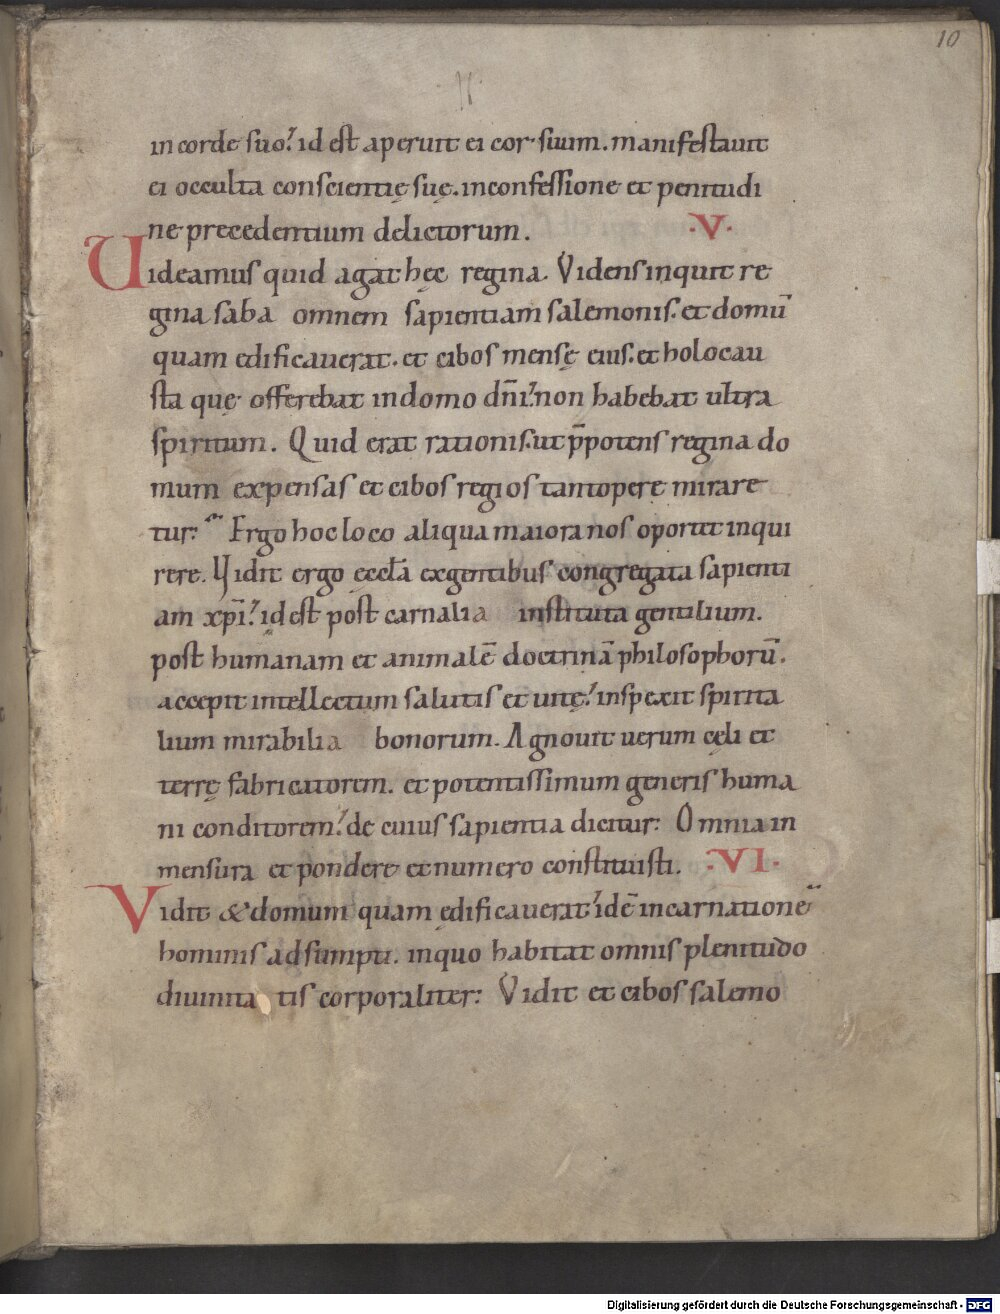 10
in corde suo. id est aperuit ei cor suum. manifestauit
ei occulta conscientię suę. in confessione et penitudi
ne precedentium delictorum. ·V·
Uideamus quid agat hęc regina. Videns inquit re
gina saba omnem sapientiam salemonis. et domū
quam edificauerat. et cibos mensę eius. et holocau
sta que offerebat in domo dn̄i. non habebat ultra
spiritum. Quid erat rationis. ut p̄potens regina do
mum expensas et cibos regios tantopere mirare
tur. Ergo hoc loco aliqua maiora nos oportet inqui
rere. Vidit ergo ęcclā ex gentibus congregata sapienti
am xp̄i. id est post carnalia instituta gentilium.
post humanam et animalē doctrinā philosophorū.
accepit intellectum salutis et uitę. inspexit spirita
lium mirabilia bonorum. Agnouit uerum cęli et
terrę fabricatorem. et potentissimum generis huma
ni conditorem. de cuius sapientia dicitur. Omnia in
mensura et pondere et numero constituisti. ·VI·
Vidit & domum quam ędificauerat. idē incarnationē
hominis adsumpti. in quo habitat omnis plenitudo
diuinita tis corporaliter. Vidit et cibos salemo
Digitalisierung gefördert durch die Deutsche Forschungsgemeinschaft - DFG